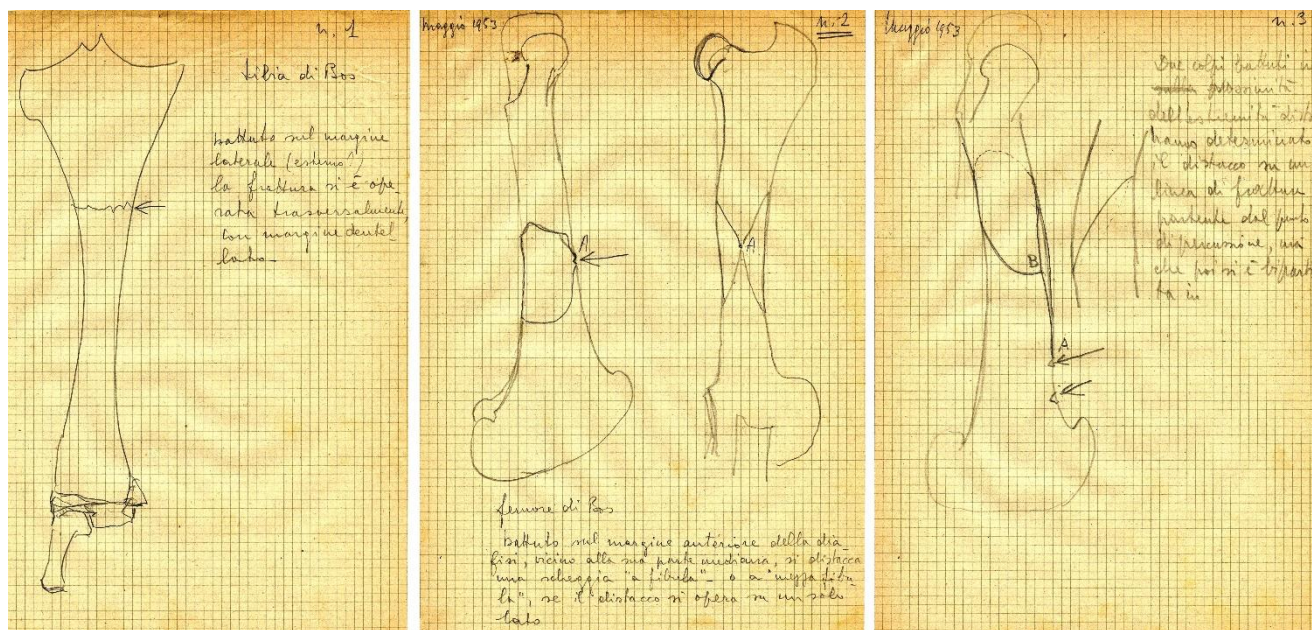 n. 1
tibia di Bos
battuto sul margine
laterale (esterno?)
la frattura si è ope-
rata trasversalmente,
con margine dentel-
lato-
Maggio 1953
n. 2
A
A
femore di Bos
battuto sul margine anteriore della dia-
fisi, vicino alla sua parte mediana, si distacca
una scheggia "a fibula" - o a "mezza fibu-
la", se il distacco si opera su un solo
lato
Maggio 1953
n. 3
Due colpi battuti
prossimità
dell'estremità dist
hanno determinato
il distacco su un
linea di frattura
partente dal punto
di percussione, ma
che poi si è bipart
ta in
B
A